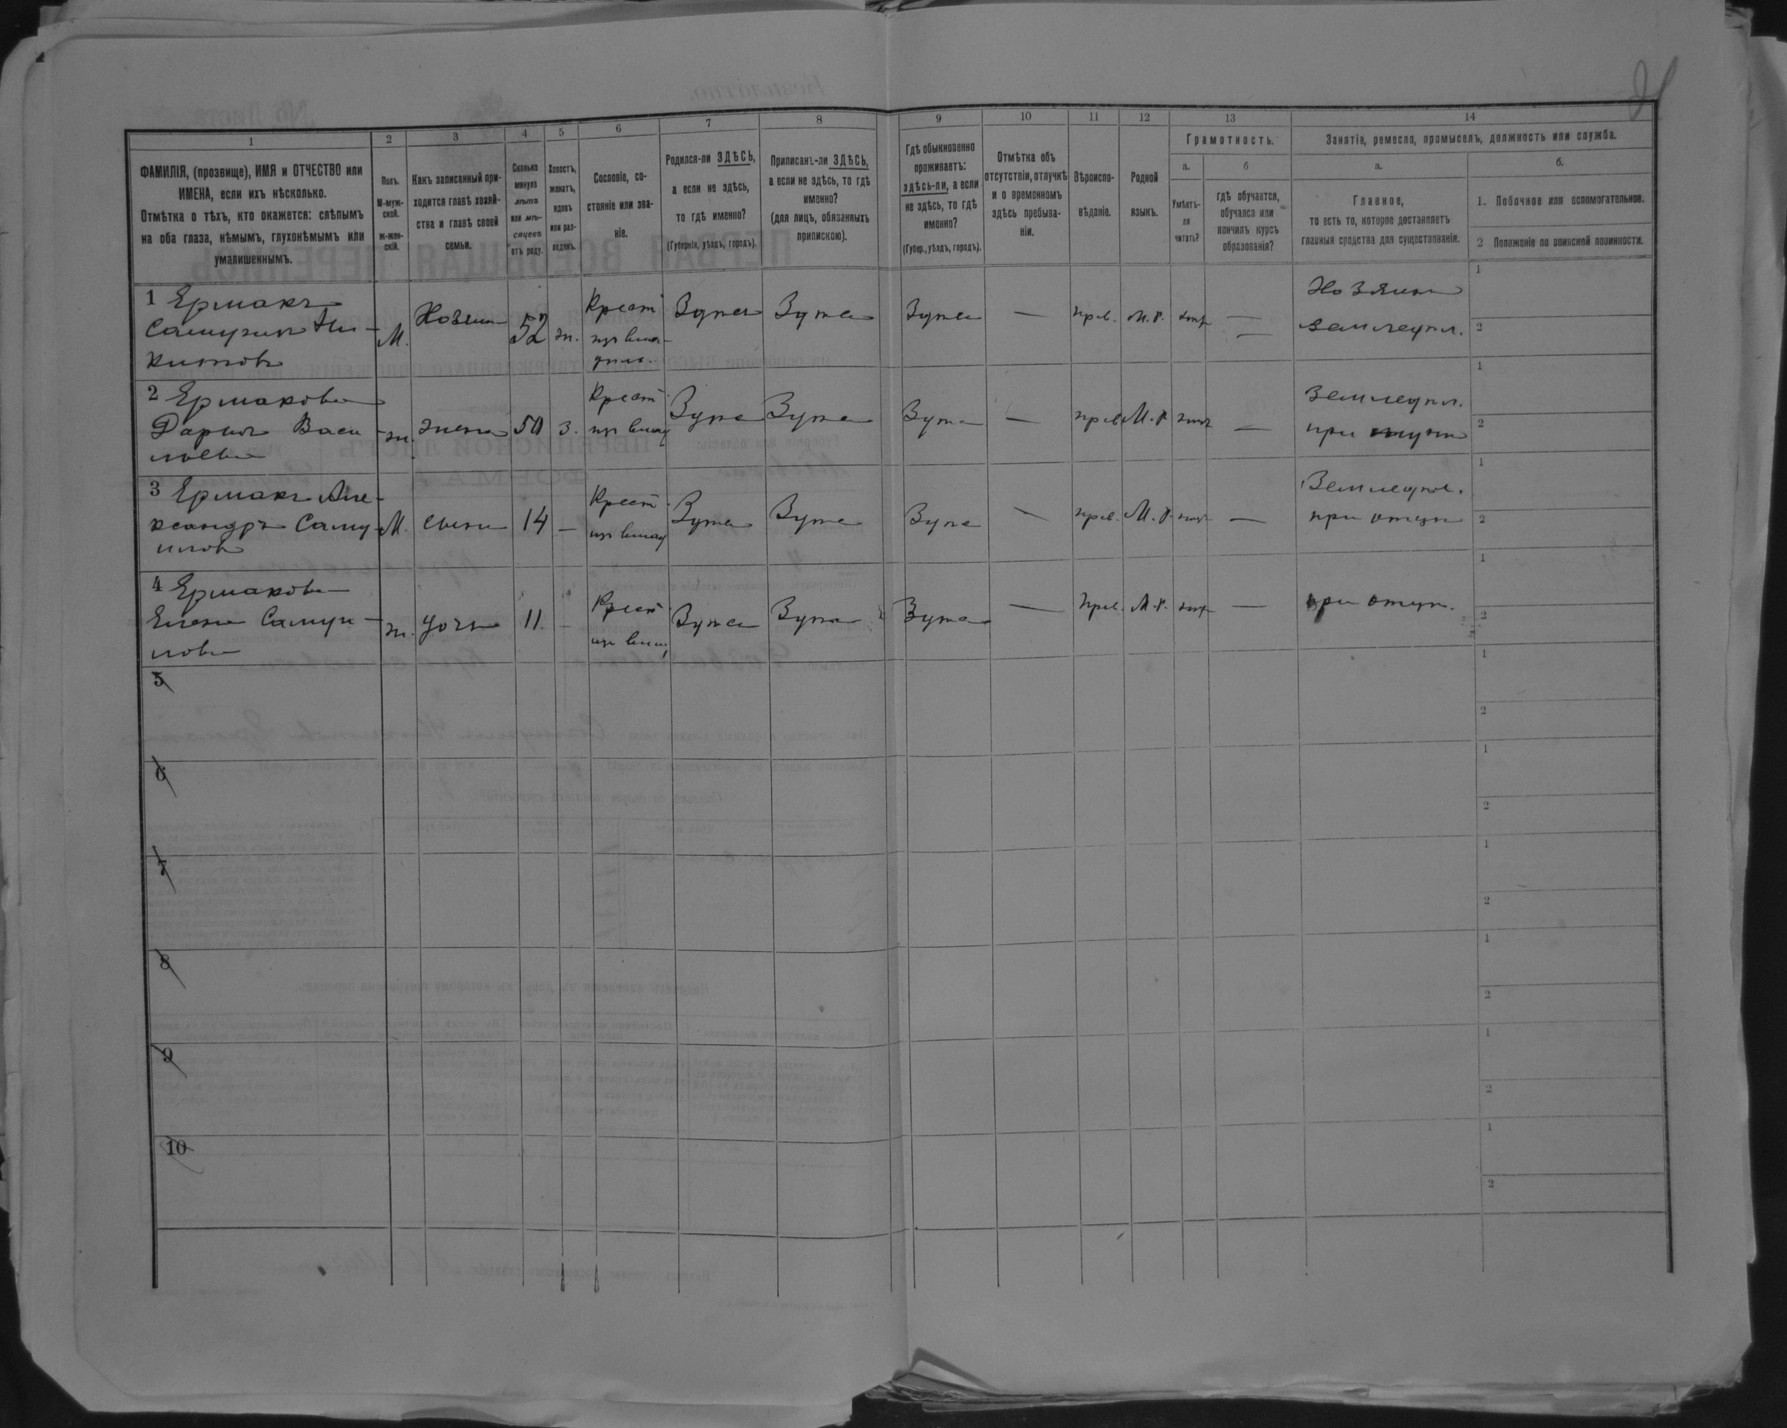 1 2 3 4 5 6 7 8 9 10 11 12 13 14
ФАМИЛІЯ, (прозвище), ИМЯ и ОТЧЕСТВО или
ИМЕНА, если ихъ нѣсколько.
Отмѣтка о тѣхъ, кто окажется: слѣпымъ
на оба глаза, нѣмымъ, глухонѣмымъ или
умалишеннымъ.
Полъ.
М-муж-
ской.
ж-жен-
скій.
Какъ записанный при-
ходится главѣ хозяй-
ства и главѣ своей
семьи.
Сколько
минуло
лѣтъ
или мѣ-
сяцевъ
отъ роду.
Холостъ,
женатъ,
вдовъ
или раз-
веденъ.
Сословіе, со-
стояніе или зва-
ніе.
Родился-ли ЗДѢСЬ,
а если не здѣсь,
то гдѣ именно?
(Губернія, уѣздъ, городъ).
Приписанъ-ли ЗДѢСЬ,
а если не здѣсь, то гдѣ
именно?
(для лицъ, обязанныхъ
припискою).
Гдѣ обыкновенно
проживаетъ:
здѣсь-ли, а если
не здѣсь, то гдѣ
именно?
(Губер., уѣздъ, городъ).
Отмѣтка объ
отсутствіи, отлучкѣ
и о временномъ
здѣсь пребыва-
ніи.
Вѣроиспо-
вѣданіе.
Родной
языкъ.
Грамотность.
а.
Умѣетъ-
ли
читать?
б
гдѣ обучается,
обучался или
кончилъ курсъ
образованія?
Занятіе, ремесло, промыселъ, должность или служба.
а.
Главное,
то есть то, которое доставляетъ
главныя средства для существованія.
б.
1. Побочное или вспомогательное.
2 Положеніе по воинской повинности.
1 Ермакъ
Самуилъ Ни-
китовъ
М.
Хозяинъ
52
ж.
Крест
Зужа
Зужа
Зужа
—
прав.
М. Р.
—
Хозяинъ
земледѣл.
1
2
2 Ермакова
Дарья Васи
льева
ж.
жена
50
з.
Крест
Зужа
Зужа
Зужа
—
прав
М. Р
—
земледѣл.
при мужѣ
1
2
3 Ермакъ Але-
ксандръ Саму-
иловъ
М.
сынъ
14
—
Крест
Зужа
Зужа
Зужа
—
прав.
М. Р.
—
Земледѣл.
при отцѣ
1
2
4 Ермакова
Елена Самуи-
лова
ж.
дочь
11.
–
Крест
Зужа
Зужа
Зужа
—
Прав.
М. Р.
—
при отцѣ.
1
2
5
1
2
6
1
2
7
1
2
8
1
2
9
1
2
10
1
2